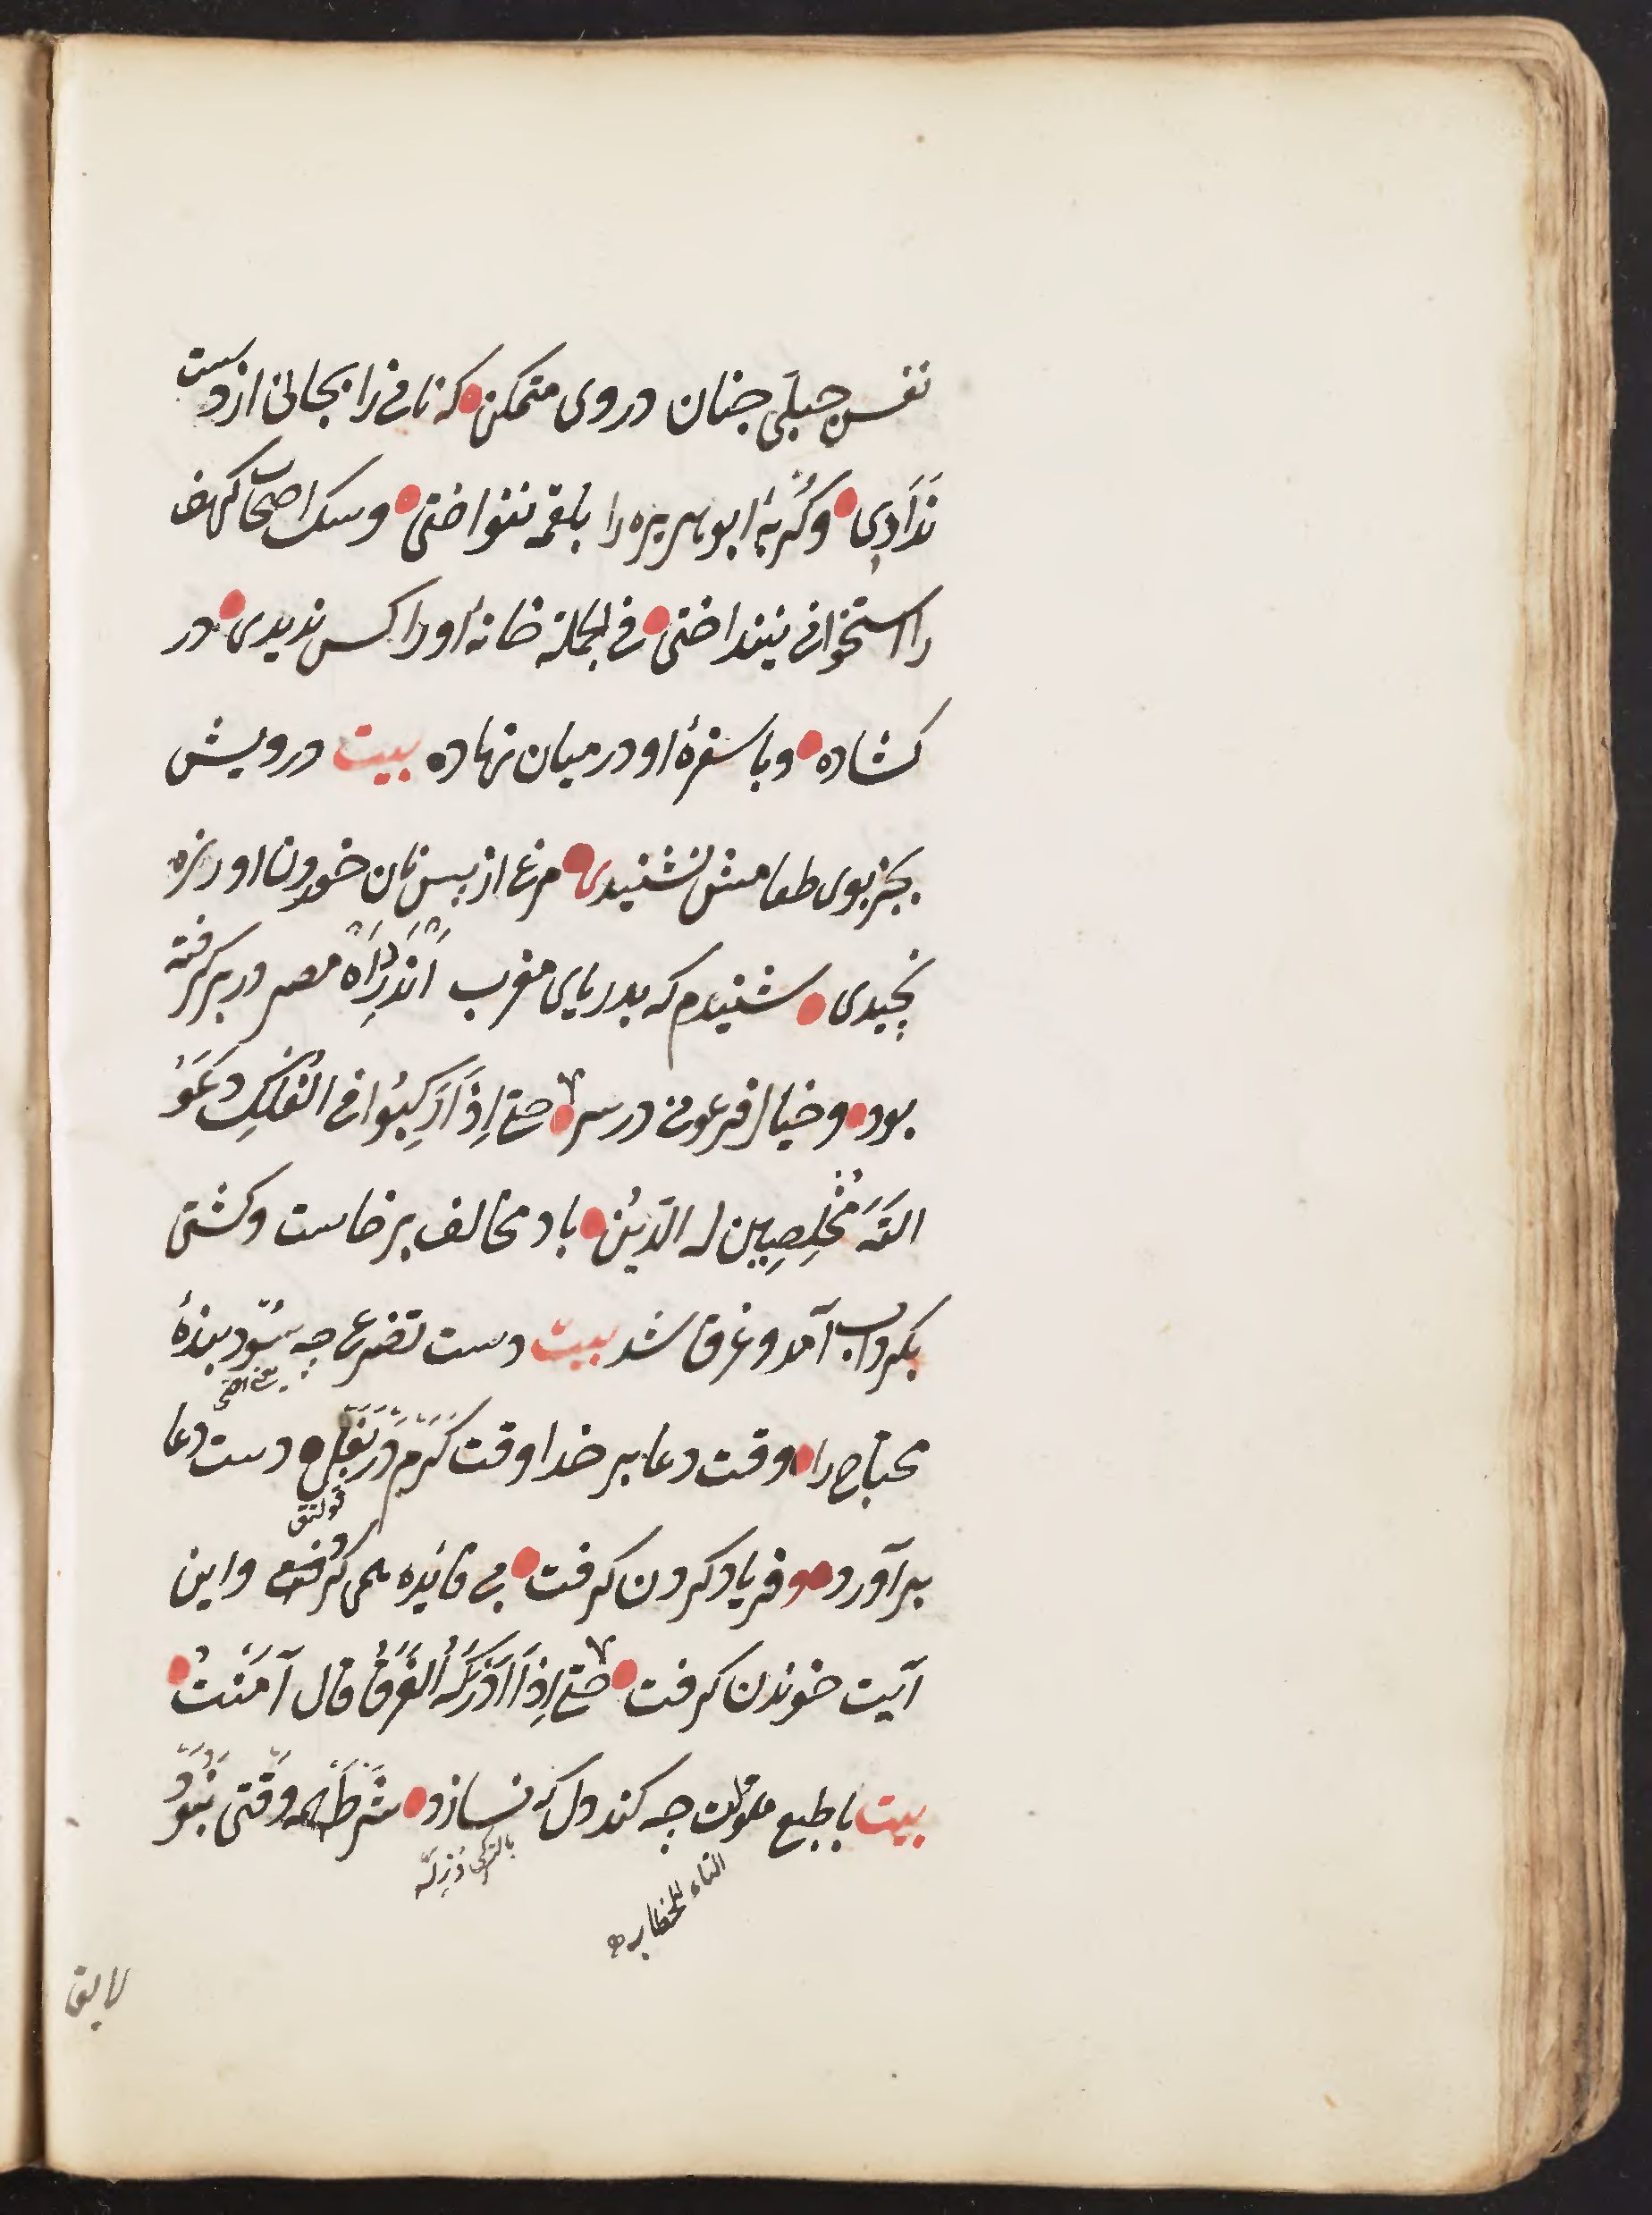 نفس جبلّی جنان در وی متمکن که نانی را بجانی از دست
نَدَادِی وکُربۀ ابو هریره را بلقمه ننواختی وسک اصحاب کهف
را استخوانی نینداختی فی الجملة خانۀ اورا کس ندیدی در
کشاده وبا سفرۀ او در میان نهاده بیت درویش
بجز بوی طعامش نشنیدی مرغ از بس نان خوردن او ریزه
نچیدی شنیدم که بدریای مغرب اَنْدَرْ رَاهِ مصر در بر کرفته
بود وخیال فرعونی در سر حتی اِذَا رَکِبُوا فی الفُلْکِ دَعَوُ
اللّهَ مُخْلِصِین له الدّیْن باد مخالف برخاست وکشتی
بکرداب آمد و غرق شد بیت دست تضرع چه سُود بندۀ
محتاج را وقت دعا بر خدا وقت کَرَم دَرْ بَغَل دست دعا
برآورد و فریاد کردن کرفت بی فائده همی کرفت واین
آیت خوندن کرفت حتی اِذَا اَدْرَکَهُ الغَرَقُ قال آمَنْتُ
بیت با طبع ملولت چه کند دل که نسازد شَرْطَه همه وَقْتی نَبُوَدْ
بالترکی
التاء للخطاب
لایق